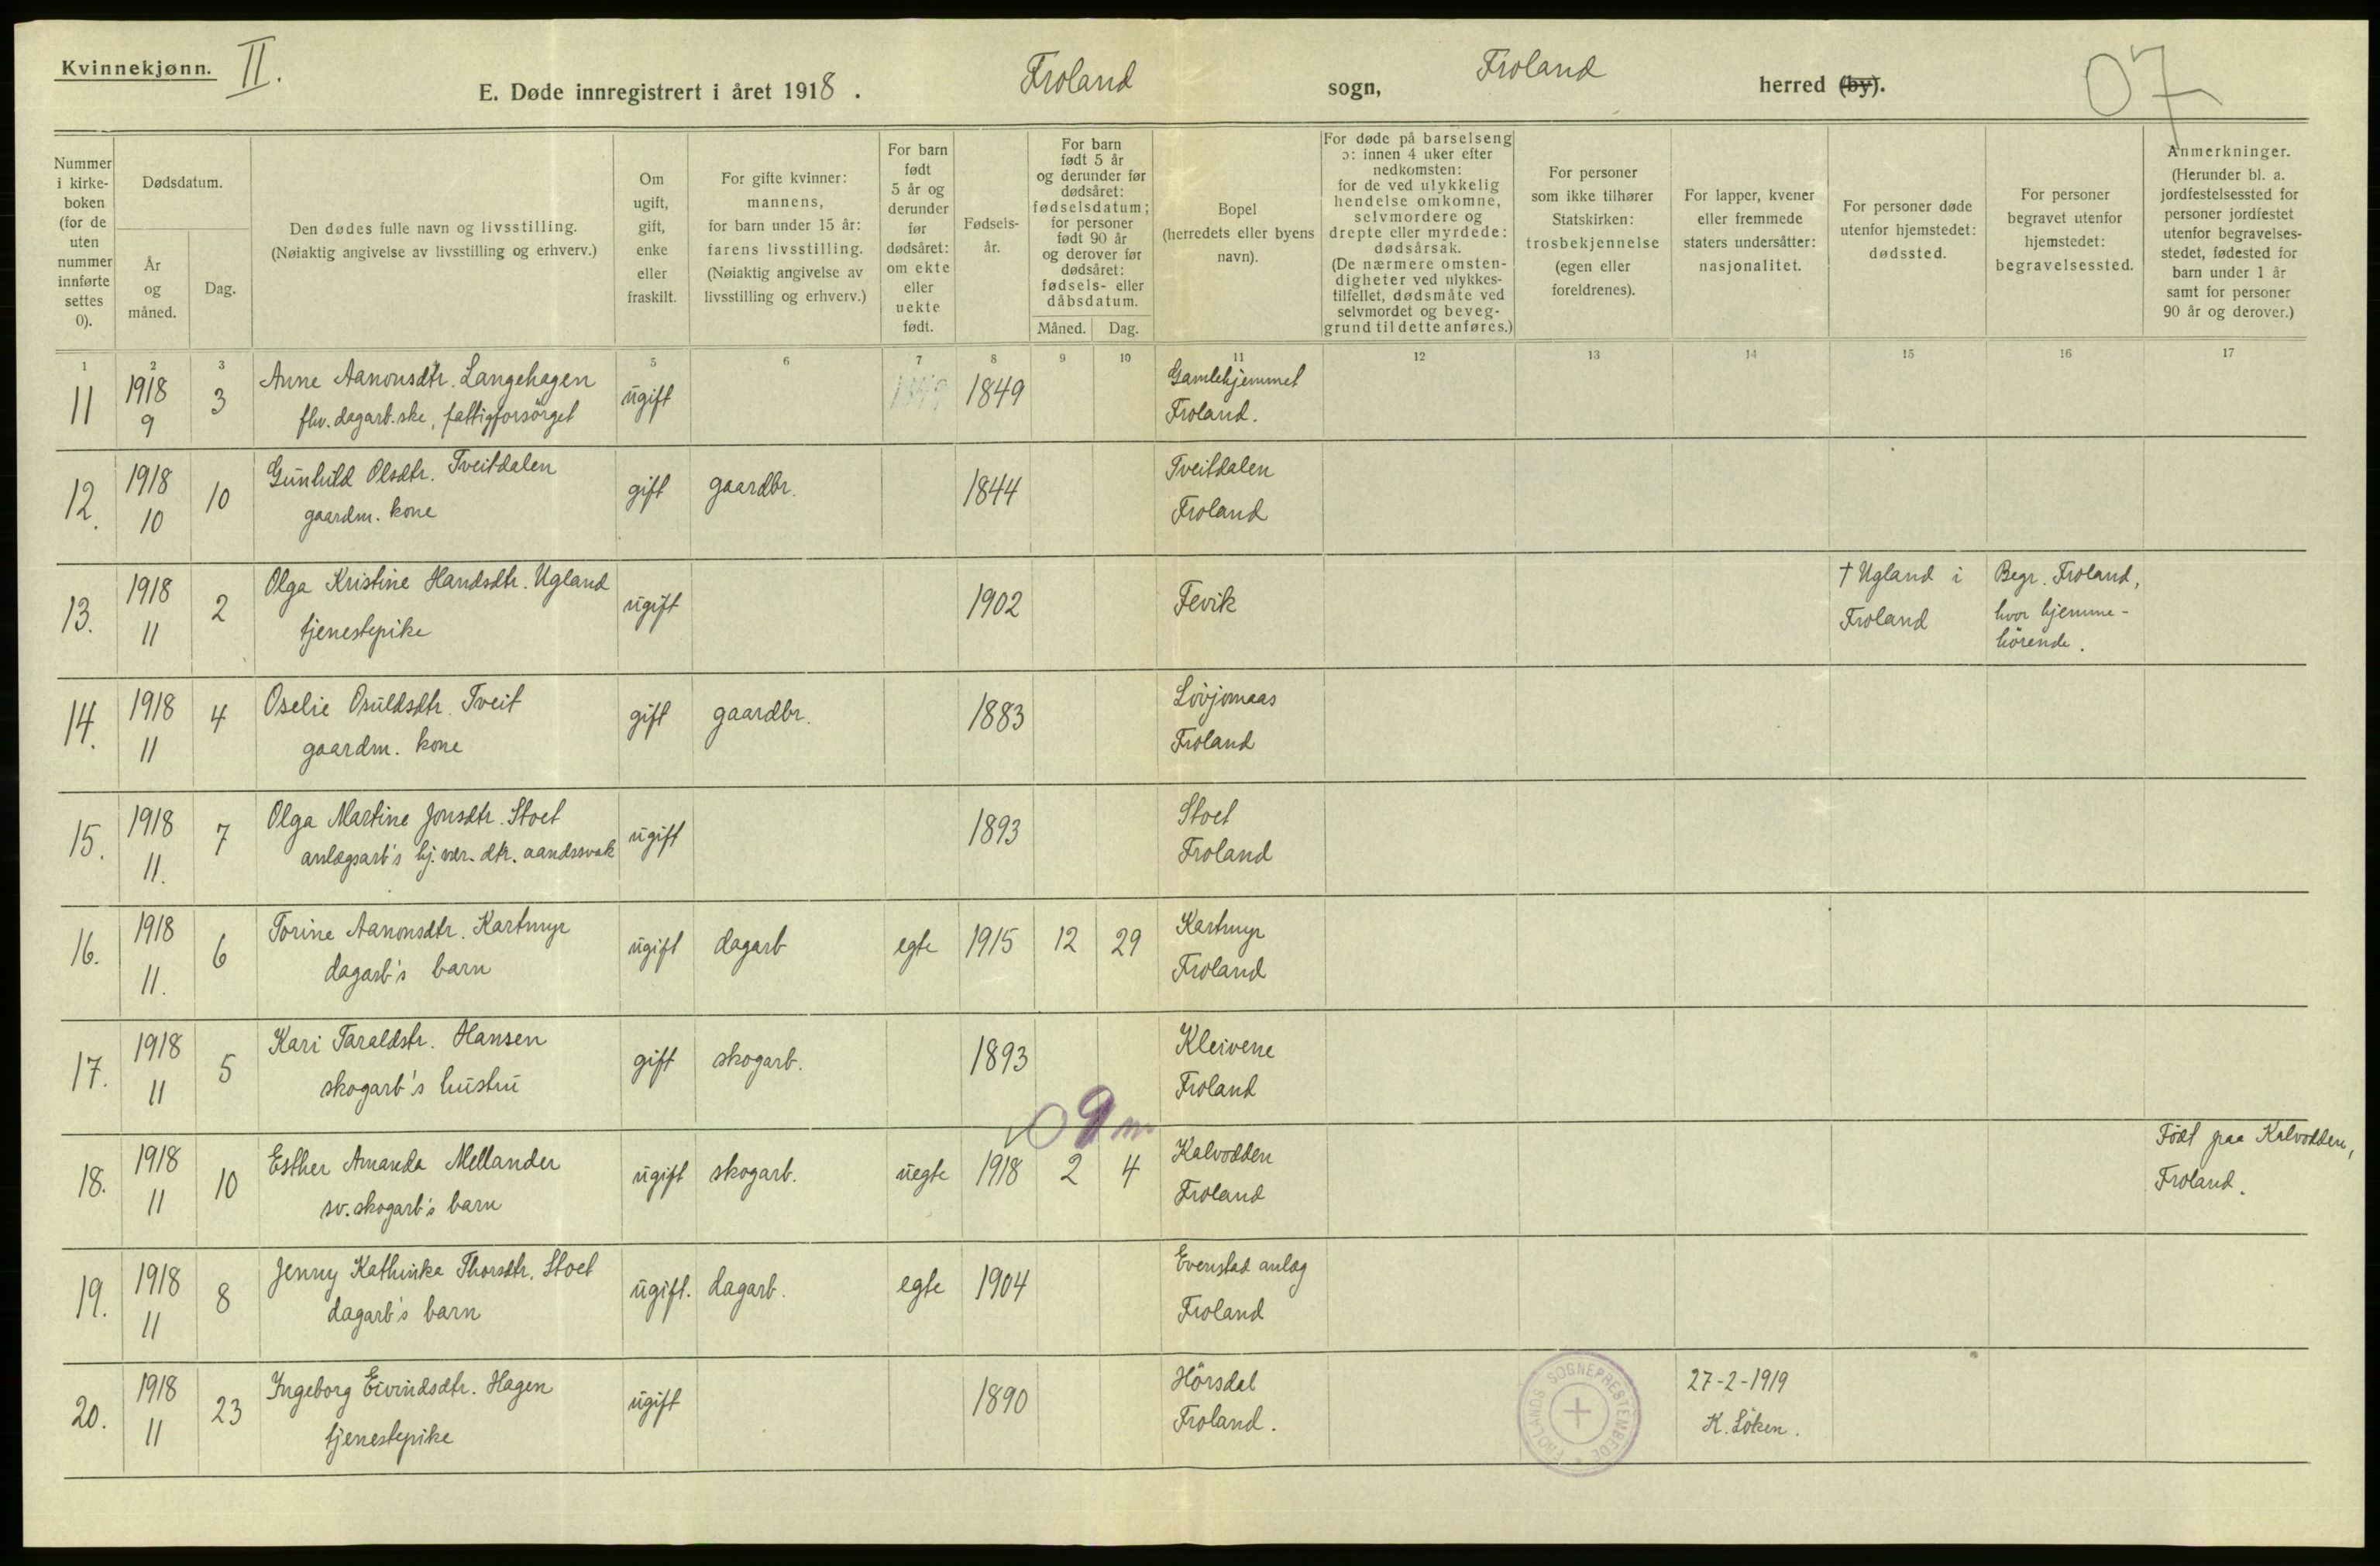 Kvinnekjønn. II.
E. Døde innregistrert i året 1918. Froland sogn, Froland herred (by).
07
Nummer i kirkeboken (for de uten nummer innførte settes 0).
Dødsdatum.
År og måned.
Dag.
Den dødes fulle navn og livsstilling.
(Nøiaktig angivelse av livsstilling og erhverv.)
Om ugift, gift, enke eller fraskilt.
For gifte kvinner: mannens, for barn under 15 år: farens livsstilling. (Nøiaktig angivelse av livsstilling og erhverv.)
For barn født 5 år og derunder før dødsåret: om ekte eller uekte født.
Fødsels-år.
For barn født 5 år og derunder før dødsåret: fødselsdatum; for personer født 90 år og derover før dødsåret: fødsels- eller dåbsdatum.
Måned. Dag.
Bopel (herredets eller byens navn).
For døde på barselseng ɔ: innen 4 uker efter nedkomsten: for de ved ulykkelig hendelse omkomne, selvmordere og drepte eller myrdede: dødsårsak. (De nærmere omsten-digheter ved ulykkes-tilfellet, dødsmåte ved selvmordet og beveg-grund til dette anføres.)
For personer som ikke tilhører Statskirken: trosbekjennelse (egen eller foreldrenes).
For lapper, kvener eller fremmede staters undersåtter: nasjonalitet.
For personer døde utenfor hjemstedet: dødssted.
For personer begravet utenfor hjemstedet: begravelsessted.
Anmerkninger. (Herunder bl. a. jordfestelsessted for personer jordfestet utenfor begravelses-stedet, fødested for barn under 1 år samt for personer 90 år og derover.)
1 2 3 5 6 7 8 9 10 11 12 13 14 15 16 17
11 1918 9 3 Anne Aanonsdtr. Langehagen ugift 1849 1849 Gamlehjemmet
fhv. dagarb.ske, fattigforsörget Froland.
12. 1918 10 10 Gunhild Olsdtr. Tveitdalen gift gaardbr. 1844 Tveitdalen
gaardm. kone Froland
13. 1918 11 2 Olga Kristine Handsdtr. Ugland ugift 1902 Fevik † Ugland i Froland Begr. Froland, hvor hjemme-hörende.
tjenestepike
14. 1918 11 4 Oselie Osuldsdtr. Tveit gift gaardbr. 1883 Lövjomaas
gaardm. kone Froland
15. 1918 11. 7 Olga Martine Jonsdtr. Stoet ugift 1893 Stoet
anlægsarb's hj. vær. dtr. aandssvak Froland
16. 1918 11. 6 Torine Aanonsdtr. Kartmyr ugift dagarb egte 1915 12 29 Kartmyr
dagarb's barn Froland
17. 1918 11 5 Kari Taraldstr. Hansen gift skogarb. 1893 Kleivene
skogarb's hustru Froland
0 9 m
18. 1918 11 10 Esther Amanda Mellander ugift skogarb. uegte 1918 2 4 Kalvodden Födt paa Kalvodden,
sv. skogarb's barn Froland Froland.
19. 1918 11 8 Jenny Kathinka Thorsdtr. Stoet ugift. dagarb. egte 1904 Evenstad anlæg
dagarb's barn Froland
20. 1918 11 23 Ingeborg Eivindsdtr. Hagen ugift 1890 Hörsdal 27-2-1919
tjenestepike Froland. K. Löken.
FROLANDS SOGNEPRESTEMBEDE